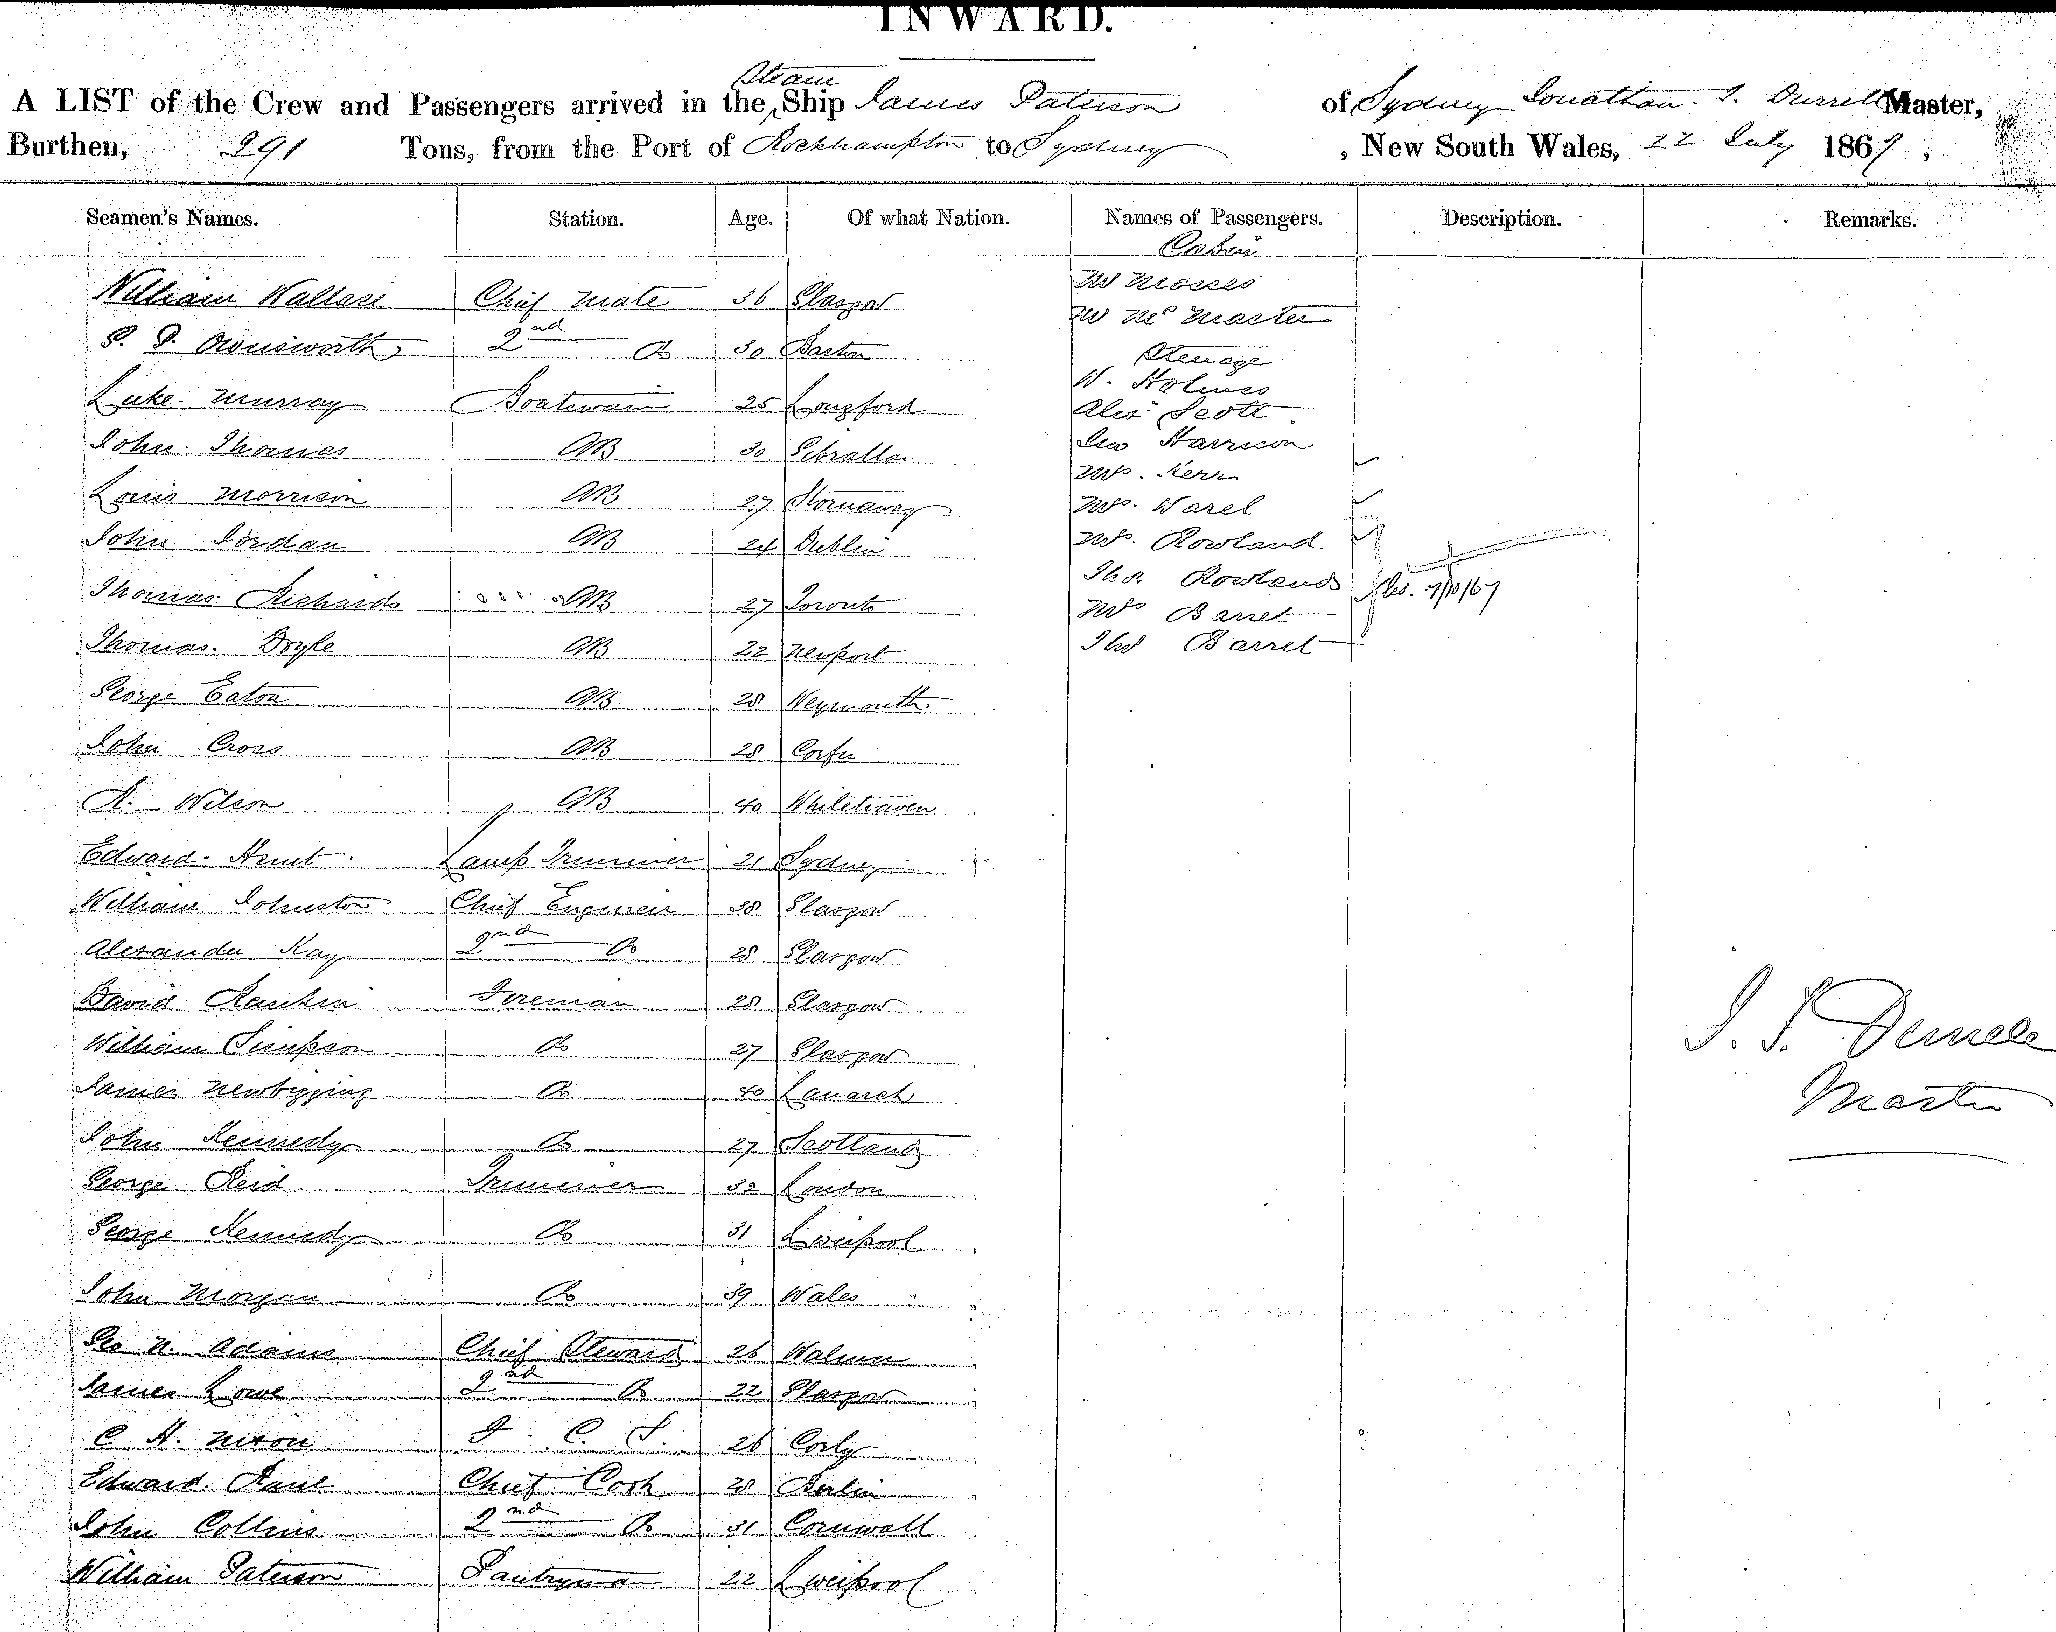 INWARD.
A LIST of the Crew and Passengers arrived in the Steam Ship James Paterson of Sydney Jonathan S. Durrell Master,
Burthen, 291 Tons, from the Port of Rockhampton to Sydney, New South Wales, 22 July 1867,
Seamen's Names. Station. Age. Of what Nation. Names of Passengers. Description. Remarks.
Cabin
William Wallace Chief Mate 36 Glasgow
Mr Mosses
Mr McMaster
2nd Do 30 Barton
Steerage
Luke Murray Boatswain 25 Longford
W. Holmes
Alex Scott
John Thomas AB 30 Gibralta
Geo Harrison
Mrs. Kerr
Louis Morrison AB 27 Stornaway
Mrs. Warel
John Jordan AB 24 Dublin
Mrs. Rowland
Thos Rowland
Thomas Richards AB 27 Toronto
Mrs Barret
Thos Barret
Thomas Doyle AB 22 Newport
George Eaton AB 28 Weymouth
John Cross AB 28 Corfu
R. Wilson AB 40 Whitehaven
Edward Hunt Lamp Trimmer 21 Sydney
William Johnston Chief Engineer 38 Glasgow
Alexander Kay 2nd Do 28 Glasgow
David Rankin Fireman 28 Glasgow
William Simpson Do 27 Glasgow
James Newbigging Do 40 Lanarch
John Kennedy Do 27 Scotland
George Reid Trimmer 32 London
George Kennedy Do 31 Liverpool
John Morgan Do 39 Wales
Geo N. Adams Chief Steward 26 Walmer
James Lowe 2nd Do 22 Glasgow
C H. Nixon F. C. S. 26 Corby
Edward Paul Chief Cook 28 Berlin
John Collins 2nd Do 31 Cornwall
William Paterson Pantryman 22 Liverpool
J. S. Durrell
Master